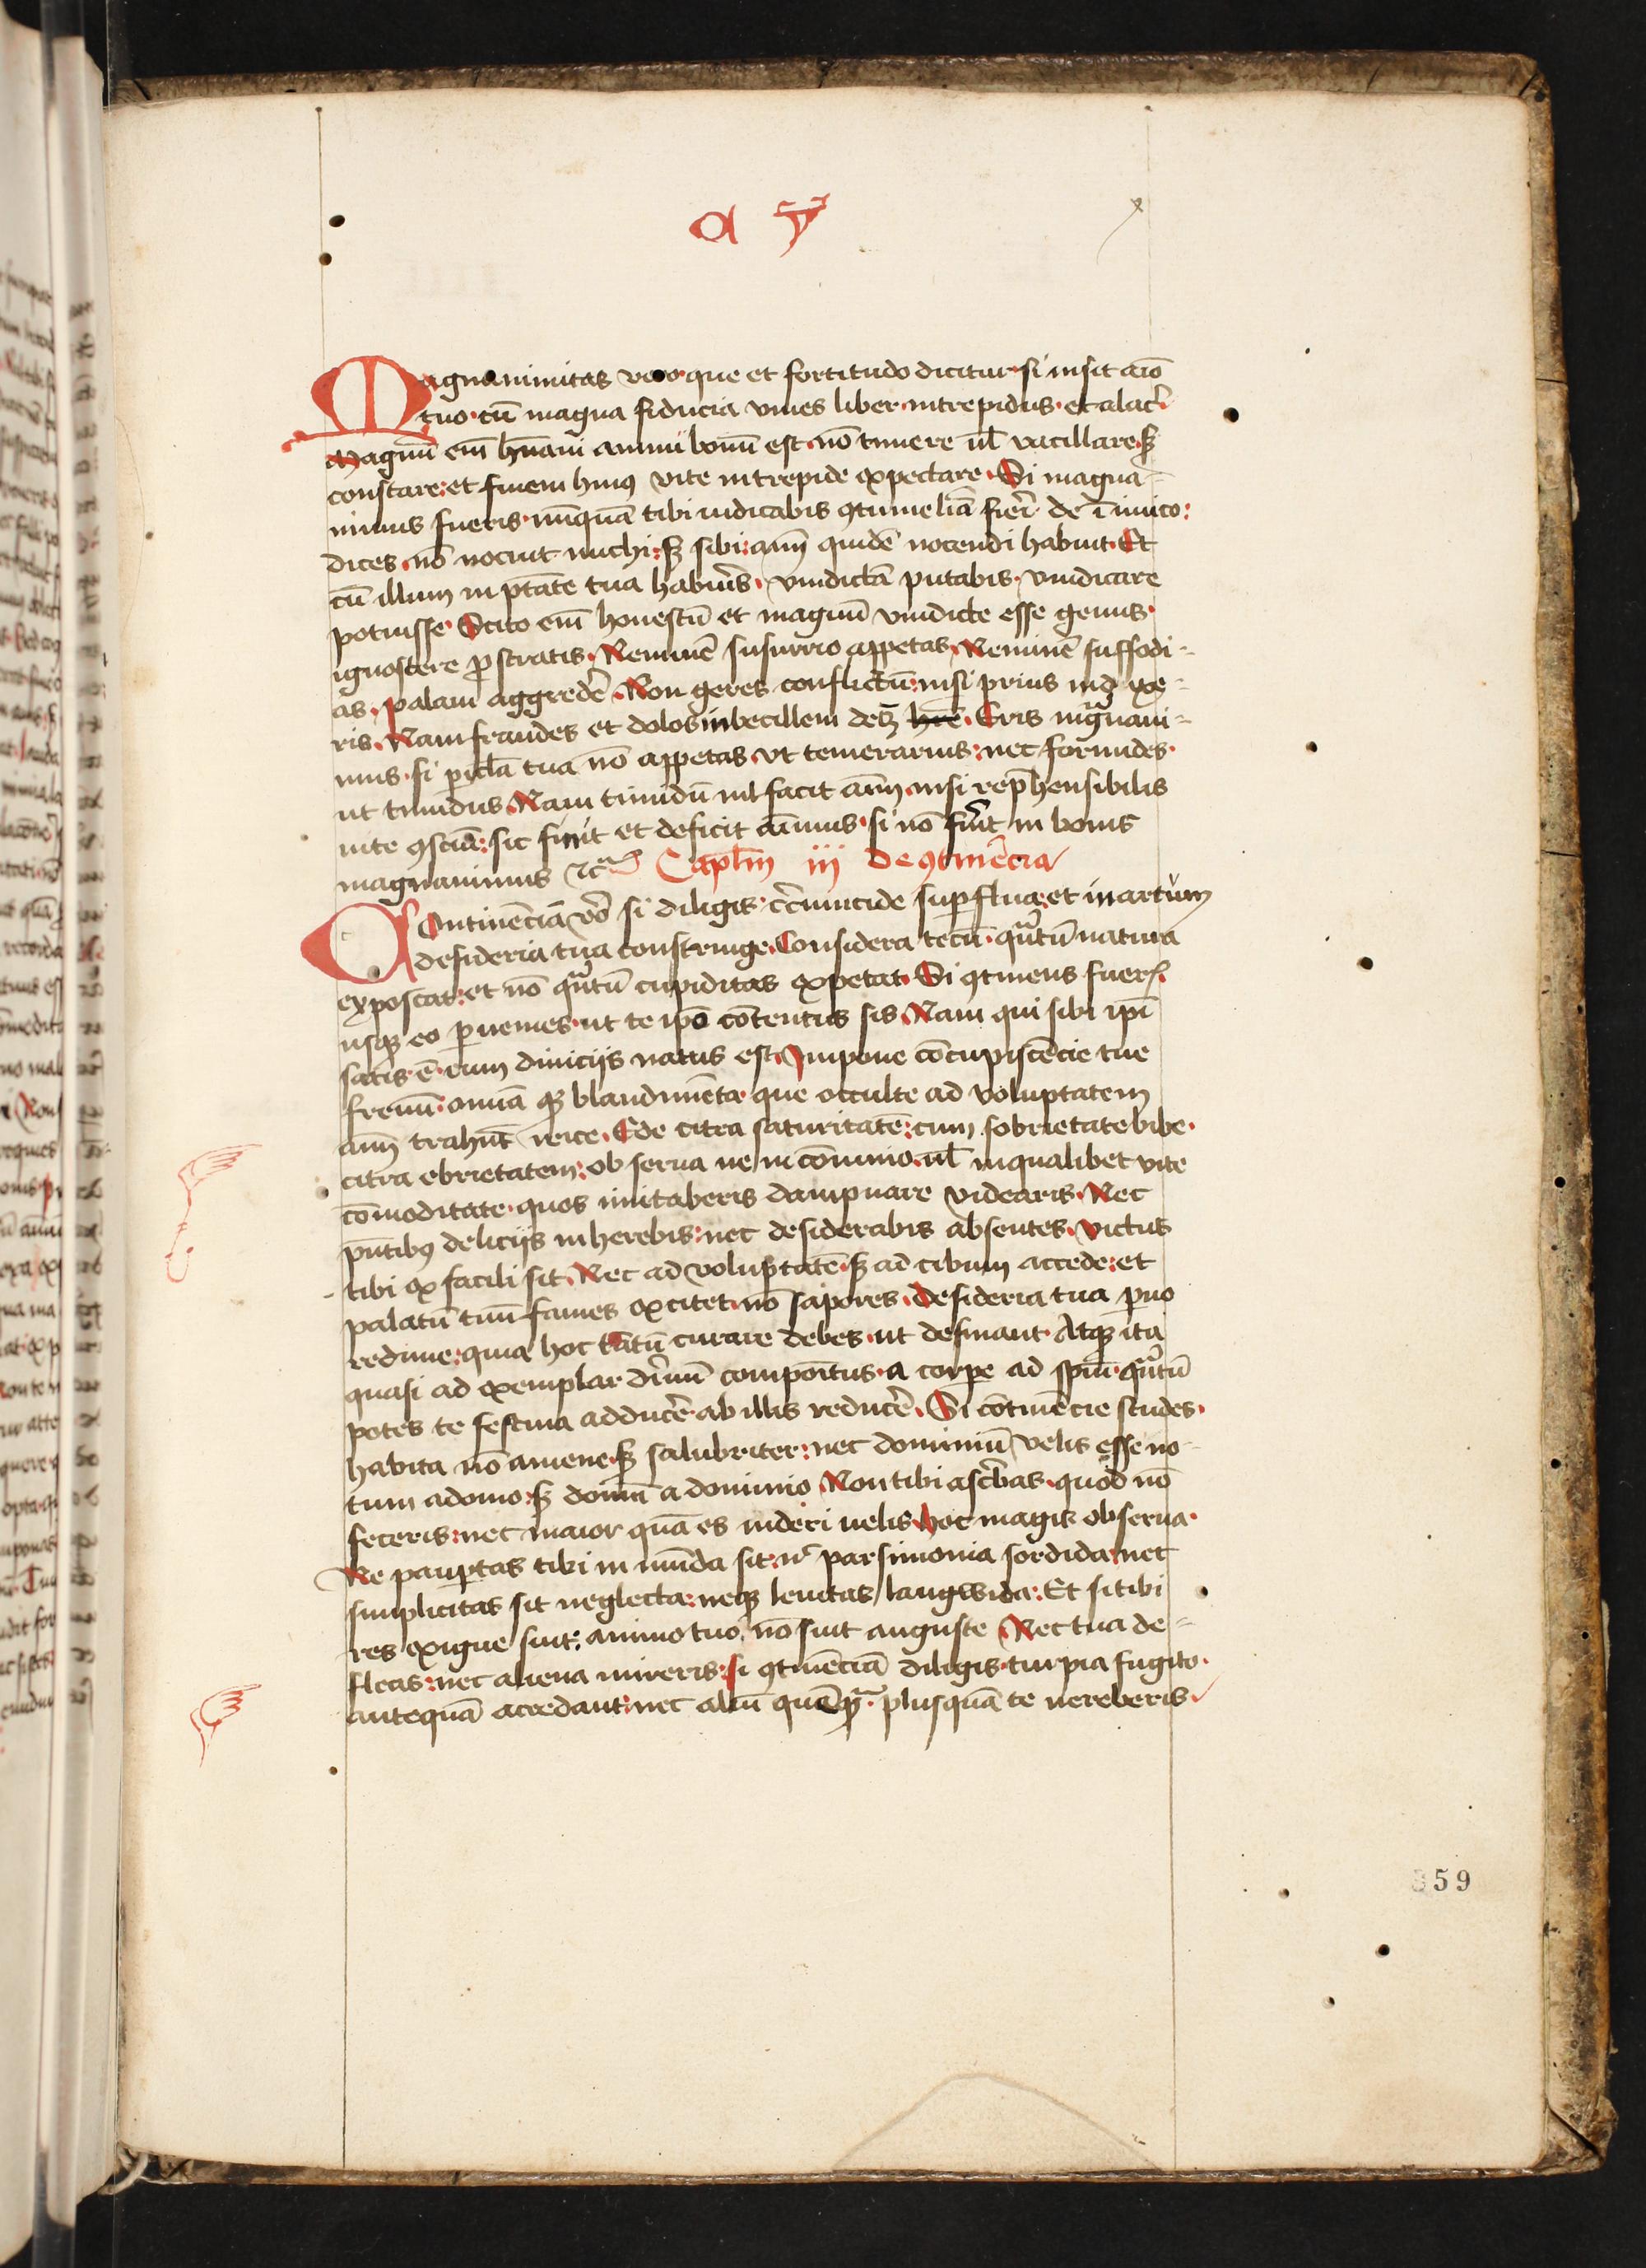 Magnanimitas vero que et fortitudo dicitur si insit aīo
tuo cū magna fiducia viues liber intrepidus et alacer
Magnū em̄ hūani animi bonū est nō timere ul̄ vacillare sꝫ
constare: et finem huiꝰ vite intrepide expectare. Si magna-
nimus fueris nūquā tibi iudicabis ꝯtumeliā fierī de īimico:
dices nō nocuit michi: sꝫ sibi: aīm quidē nocendi habuit. Et
cū illum in ptāte tua habueris, vindictā putabis vindicare
potuisse. Scito em̄ honestū et magnū vindicte esse genus
ignoscere ꝓstratis. Neminē susurrio appetas, Neminē suffodi-
as, palam aggredere. Non geres conflictū: nisi prius indixe-
ris. Nam fraudes et dolos inbecillem decꝫ hr̄e. Eris mᵃgnani-
mus si pericl̄a tua nō appetas vt temerarius: nec formides
ut timidus. Nam timidū nil facit aīm nisi rep̄hensibilis
uite ꝯsciē: sic finit et deficit animus si nō fuerit in bonis
magnanimus ⁊cᵃ Capl̄m iij De ꝯtinēcia
Continēciā vo si diligis circūcide suꝑflua: et in artum
desideria tua constringe. Considera tecū qᵃntū natura
exposcat: et nō qᵃntū cupiditas expetat. Si ꝯtinens fueris
usqꝫ eo ꝑuenies ut te ipō cōtentus sis. Nam qui sibi ipī
satis ē cum diuicijs natus est. Impone cōcupiscēcie tue
frenū omnīaqꝫ blandimēta que occulte ad voluptatem
aīm trahūt reice. Ede citra saturitatē: cum sobrietate bibe
citra ebrietatem: obserua ne in cōmino ul̄ in qualibet vite
cōmoditate quos imitaberis dampnare videaris. Nec
pn̄tibꝰ delicijs inherebis: nec desiderabis absentes. Victus
tibi ex facili sit. Nec ad voluptatē sꝫ ad cibum accede: et
palatū tuū fames excitet nō sapores. Desideria tua ꝑuo
redime: quia hoc tātū curare debes ut desinant. Atqꝫ ita
quasi ad exemplar diuinū compoītus a corꝑe ad spm̄ qᵃntū
potes te festina adducē ab illis reducē. Si cōtinēcie studes
habita nō amene sꝫ salubriter: nec dominiū velis esse no-
tum a domo: sꝫ domū a dominio. Non tibi ascribas quod nō
feceris: nec maior quā es uideri uelis. hoc magis obserua
Ne pauꝑtas tibi inmūda sit: nͨ parsimonia sordida: nec
simplicitas sit neglecta: neqꝫ lenitas langwida: Et si tibi
res exigue sint: animo tuo nō sint anguste. Nec tua de-
fleas: nec aliena mireris: si ꝯtinēciā diligis turpia fugito
antequā accedant: nec aliū quēqᵃ plusquā te uereberis
359